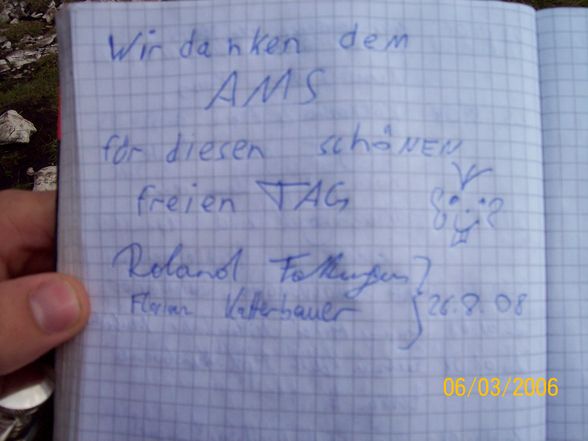 Wir danken dem
AMS
für diesen schöNEN
freien TAG
Roland
Florian Katterbauer } 26.8.08
06/03/2006